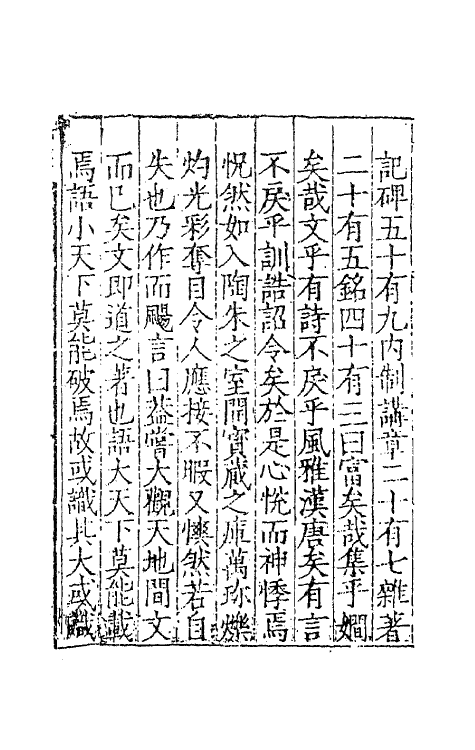 記碑五十有九内制講章二十有七雜著
二十有五銘四十有三曰富矣哉集乎嫺
矣哉文乎有詩不戾乎風雅漢唐矣有言
不戾乎訓誥詔令矣於是心恍而神悸焉
怳然如入陶朱之室開寳藏之庫萬珎爍
灼光彩奪目令人應接不暇又爽然若自
失也乃作而颺言曰葢嘗大觀天地間文
而已矣文即道之著也語大天下莫能載
焉語小天下莫能破焉故或識其大或識